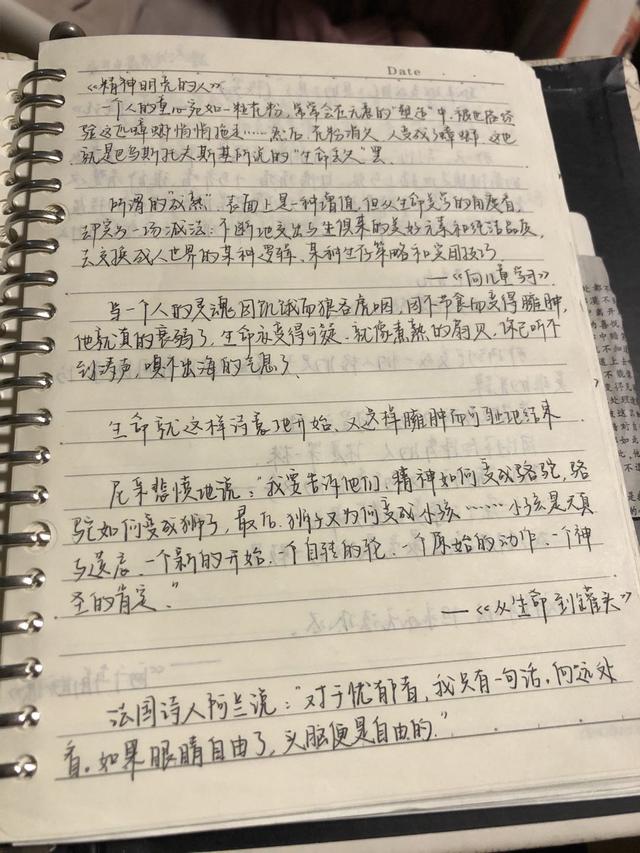 Date
《精神明亮的人》
一个人的童心宛如一粒花粉，常常会在无意的“塑造”中，被世故经
验这匹蟑螂悄悄拖走……然后，花粉消失，人变成了蟑螂。这也
就是巴乌斯托夫斯基所说的“生命丢失”罢。
所谓的“成熟”，表面上是一种增值，但从生命美学的角度看，
却实为一场减法：不断地交出与生俱来的美好元素和纯洁品质，
去交换成人世界的某种逻辑、某种生存策略和实用技巧。
——《向儿童学习》
当一个人的灵魂因饥饿而狼吞虎咽，因不节食而变得臃肿，
他就真的衰弱了，生命亦变得可疑，就像煮熟的扇贝，你已听不
到涛声，嗅不出海的气息了。
生命就这样诗意地开始，又这样臃肿而可耻地结束
尼采悲愤地说：“我要告诉他们，精神如何变成骆驼，骆
驼如何变成狮子，最后，狮子又为何变成小孩……小孩是天真
与遗忘，一个新的开始，一个自转的轮，一个原始的动作，一个神
圣的肯定。”
——《从生命到罐头》
法国诗人阿兰说：“对于忧郁者，我只有一句话，向远处
看。如果眼睛自由了，头脑便是自由的。”